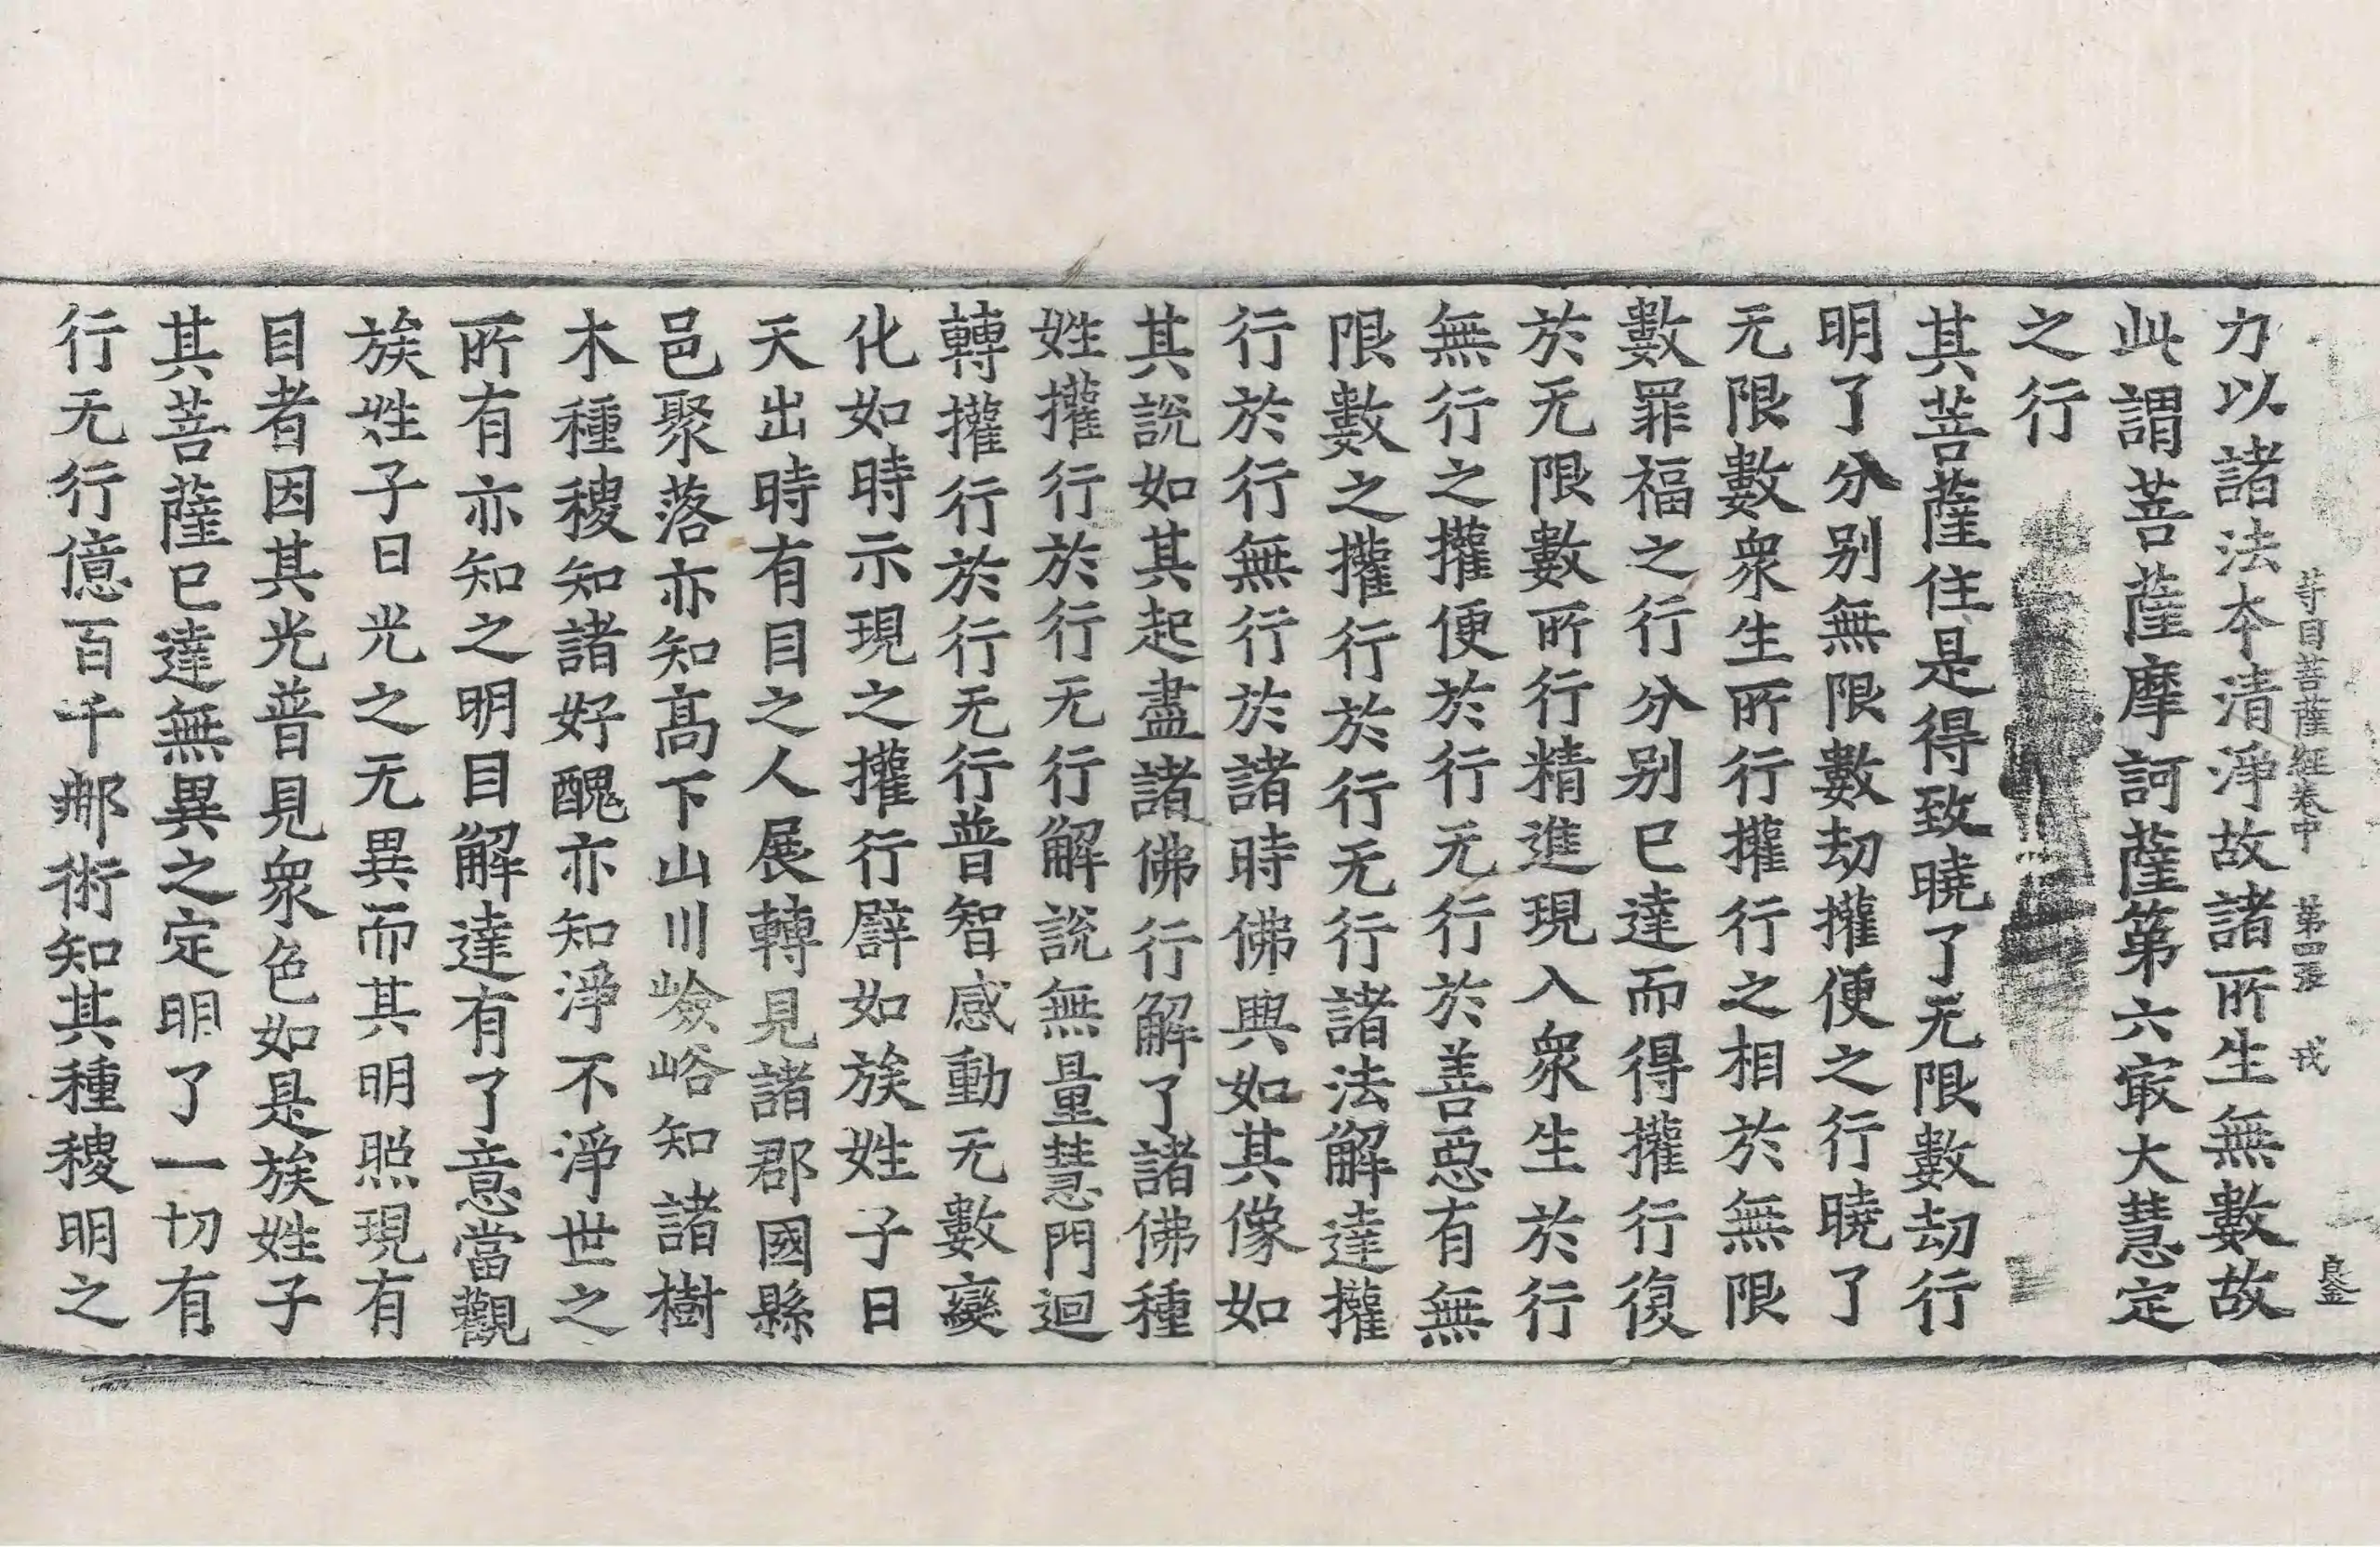 等目菩薩經卷中 第四張 戎
良金
力以諸法本清淨故諸所生無數故
此謂菩薩摩訶薩第六㝡大慧定
之行
其菩薩住是得致曉了无限數劫行
明了分别無限數劫攉便之行曉了
无限數衆生所行攉行之相於無限
數罪福之行分别已達而得攉行復
於无限數所行精進現入衆生於行
無行之攉便於行无行於善惡有無
限數之攉行於行无行諸法解達攉
行於行無行於諸時佛興如其像如
其說如其起盡諸佛行解了諸佛種
姓攉行於行无行解說無量慧門迴
轉攉行於行无行普智感動无數變
化如時示現之攉行譬如族姓子日
天出時有目之人展轉見諸郡國縣
邑聚落亦知高下山川嶮峪知諸樹
木種稷知諸好醜亦知淨不淨世之
所有亦知之明目解達有了意當觀
族姓子日光之无異而其明照現有
目者因其光普見衆色如是族姓子
其菩薩已達無異之定明了一切有
行无行億百千那術知其種稷明之